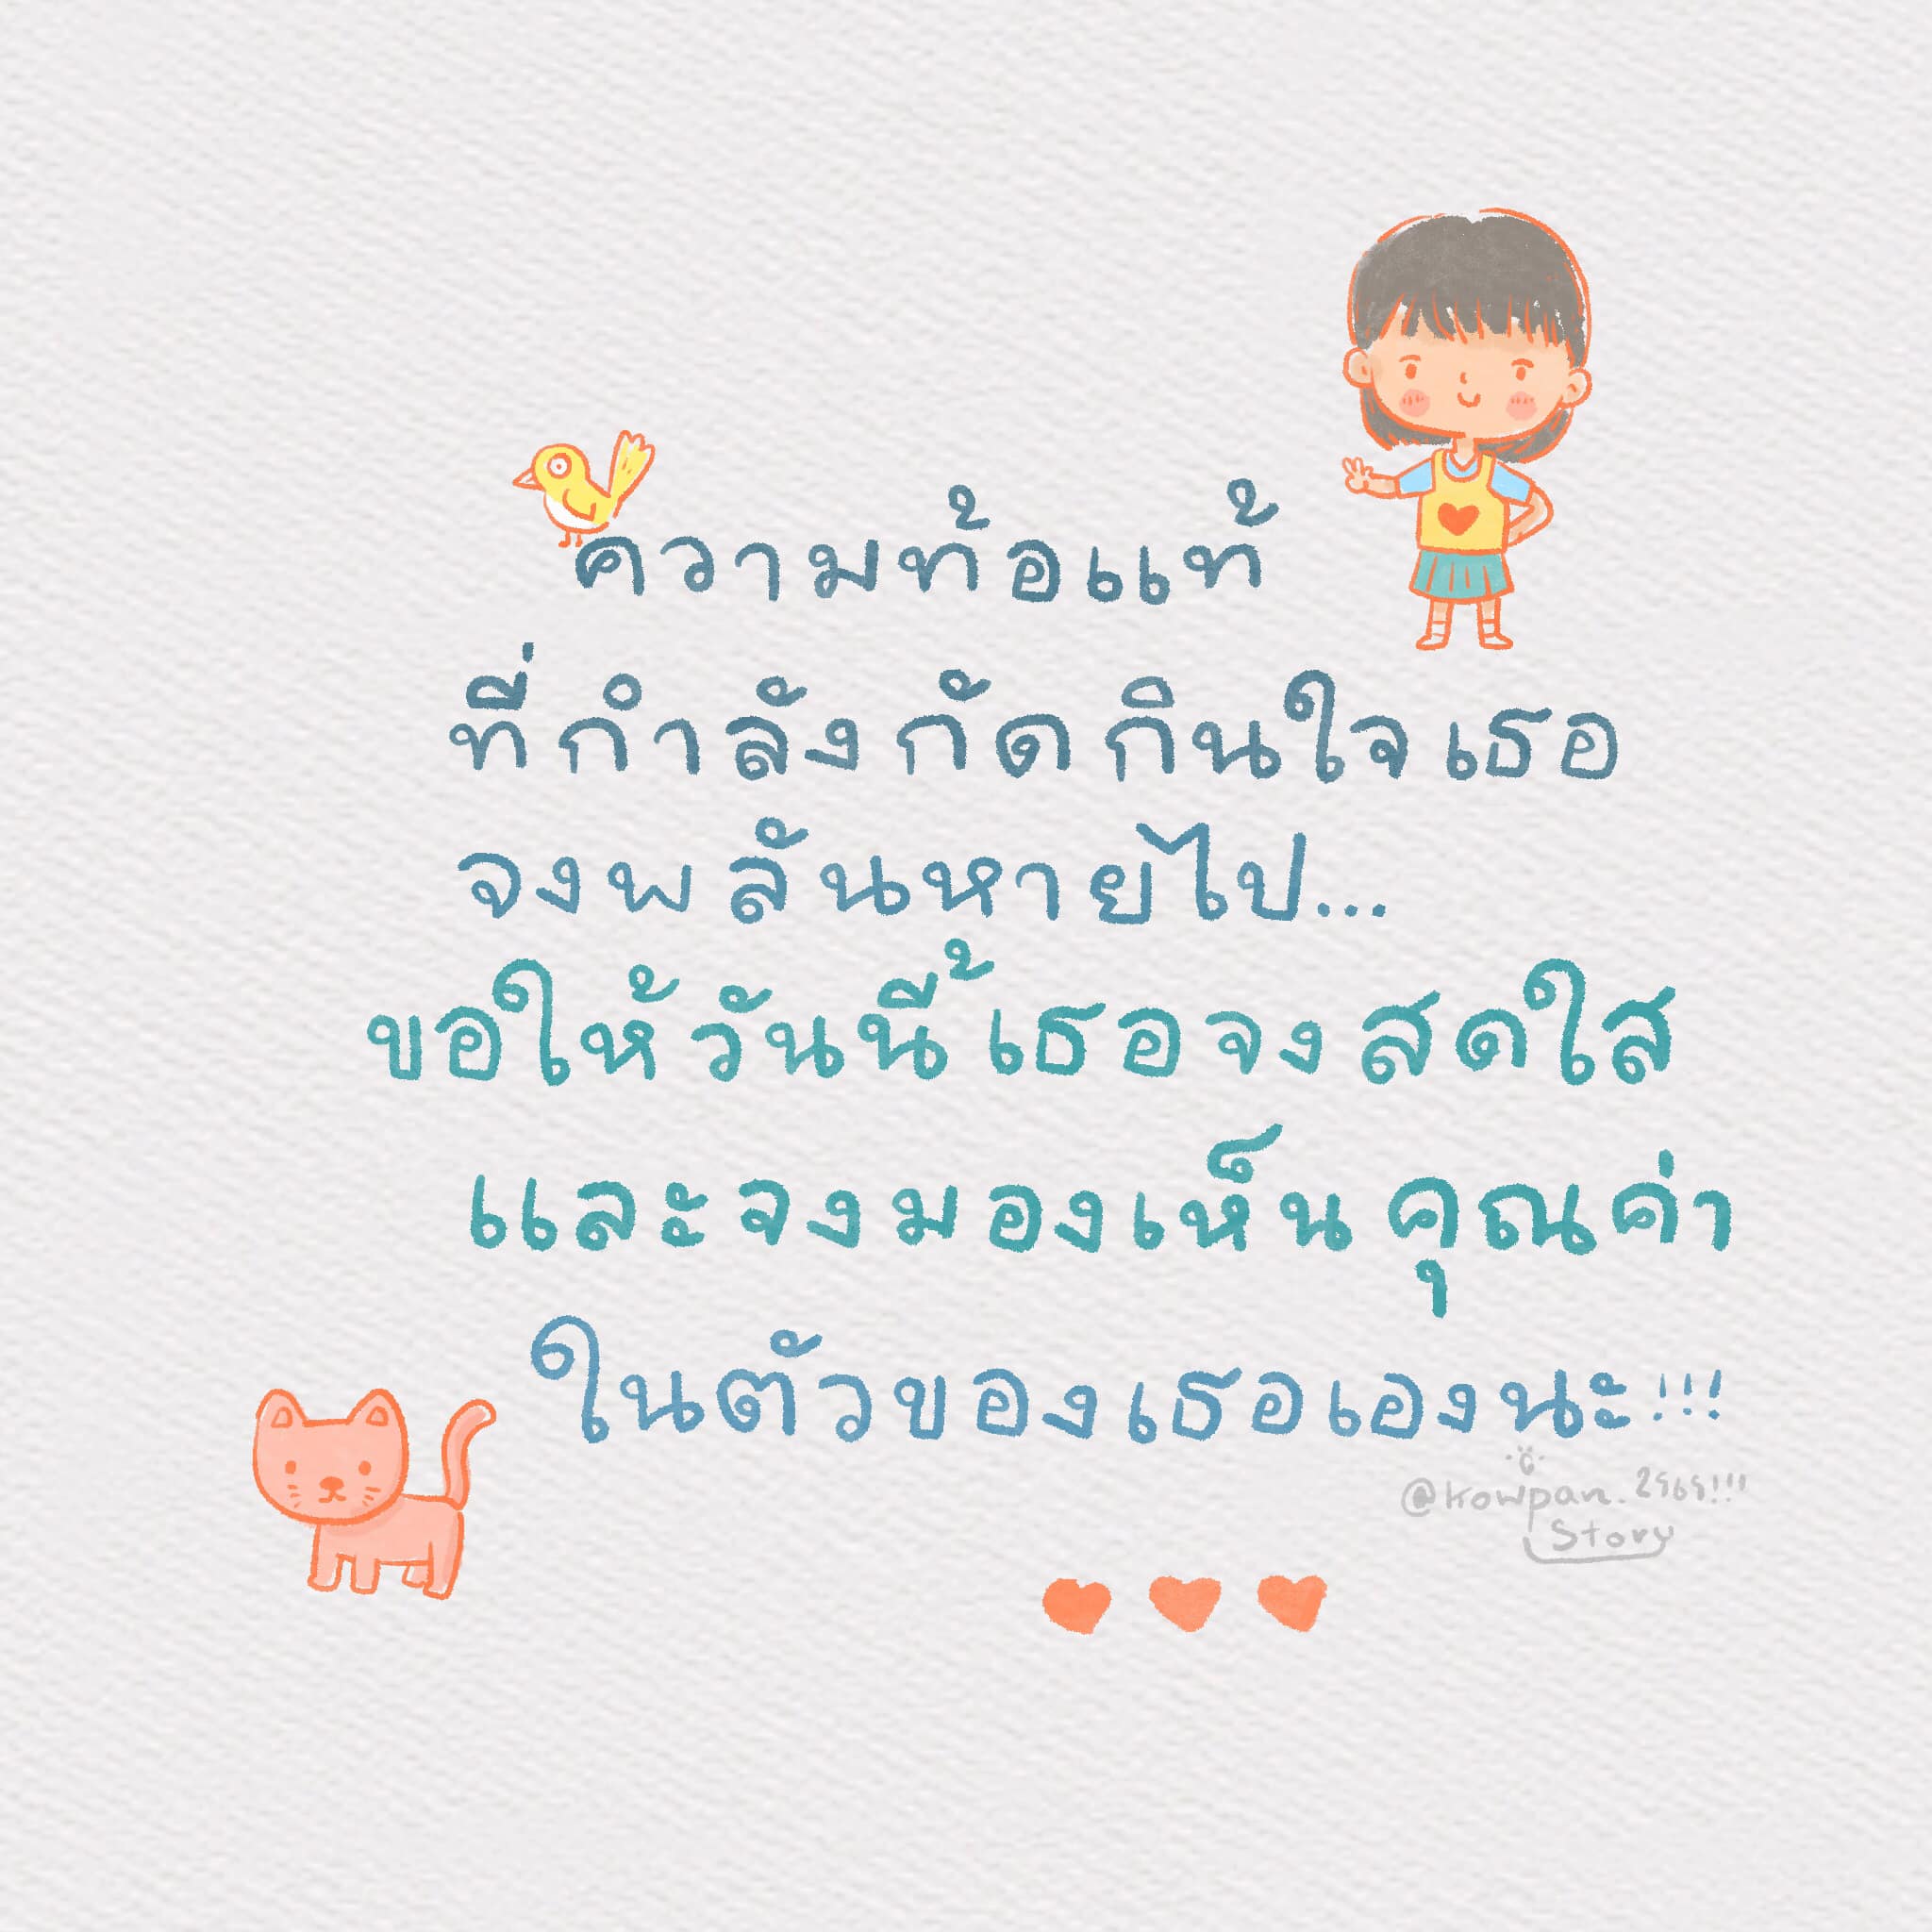 ความท้อแท้
ที่กำลังกัดกินใจเธอ
จงพลันหายไป...
ขอให้วันนี้เธอจงสดใส
และจงมองเห็นคุณค่า
ในตัวของเธอเองนะ!!!
@kowpan.2565!!!
Story